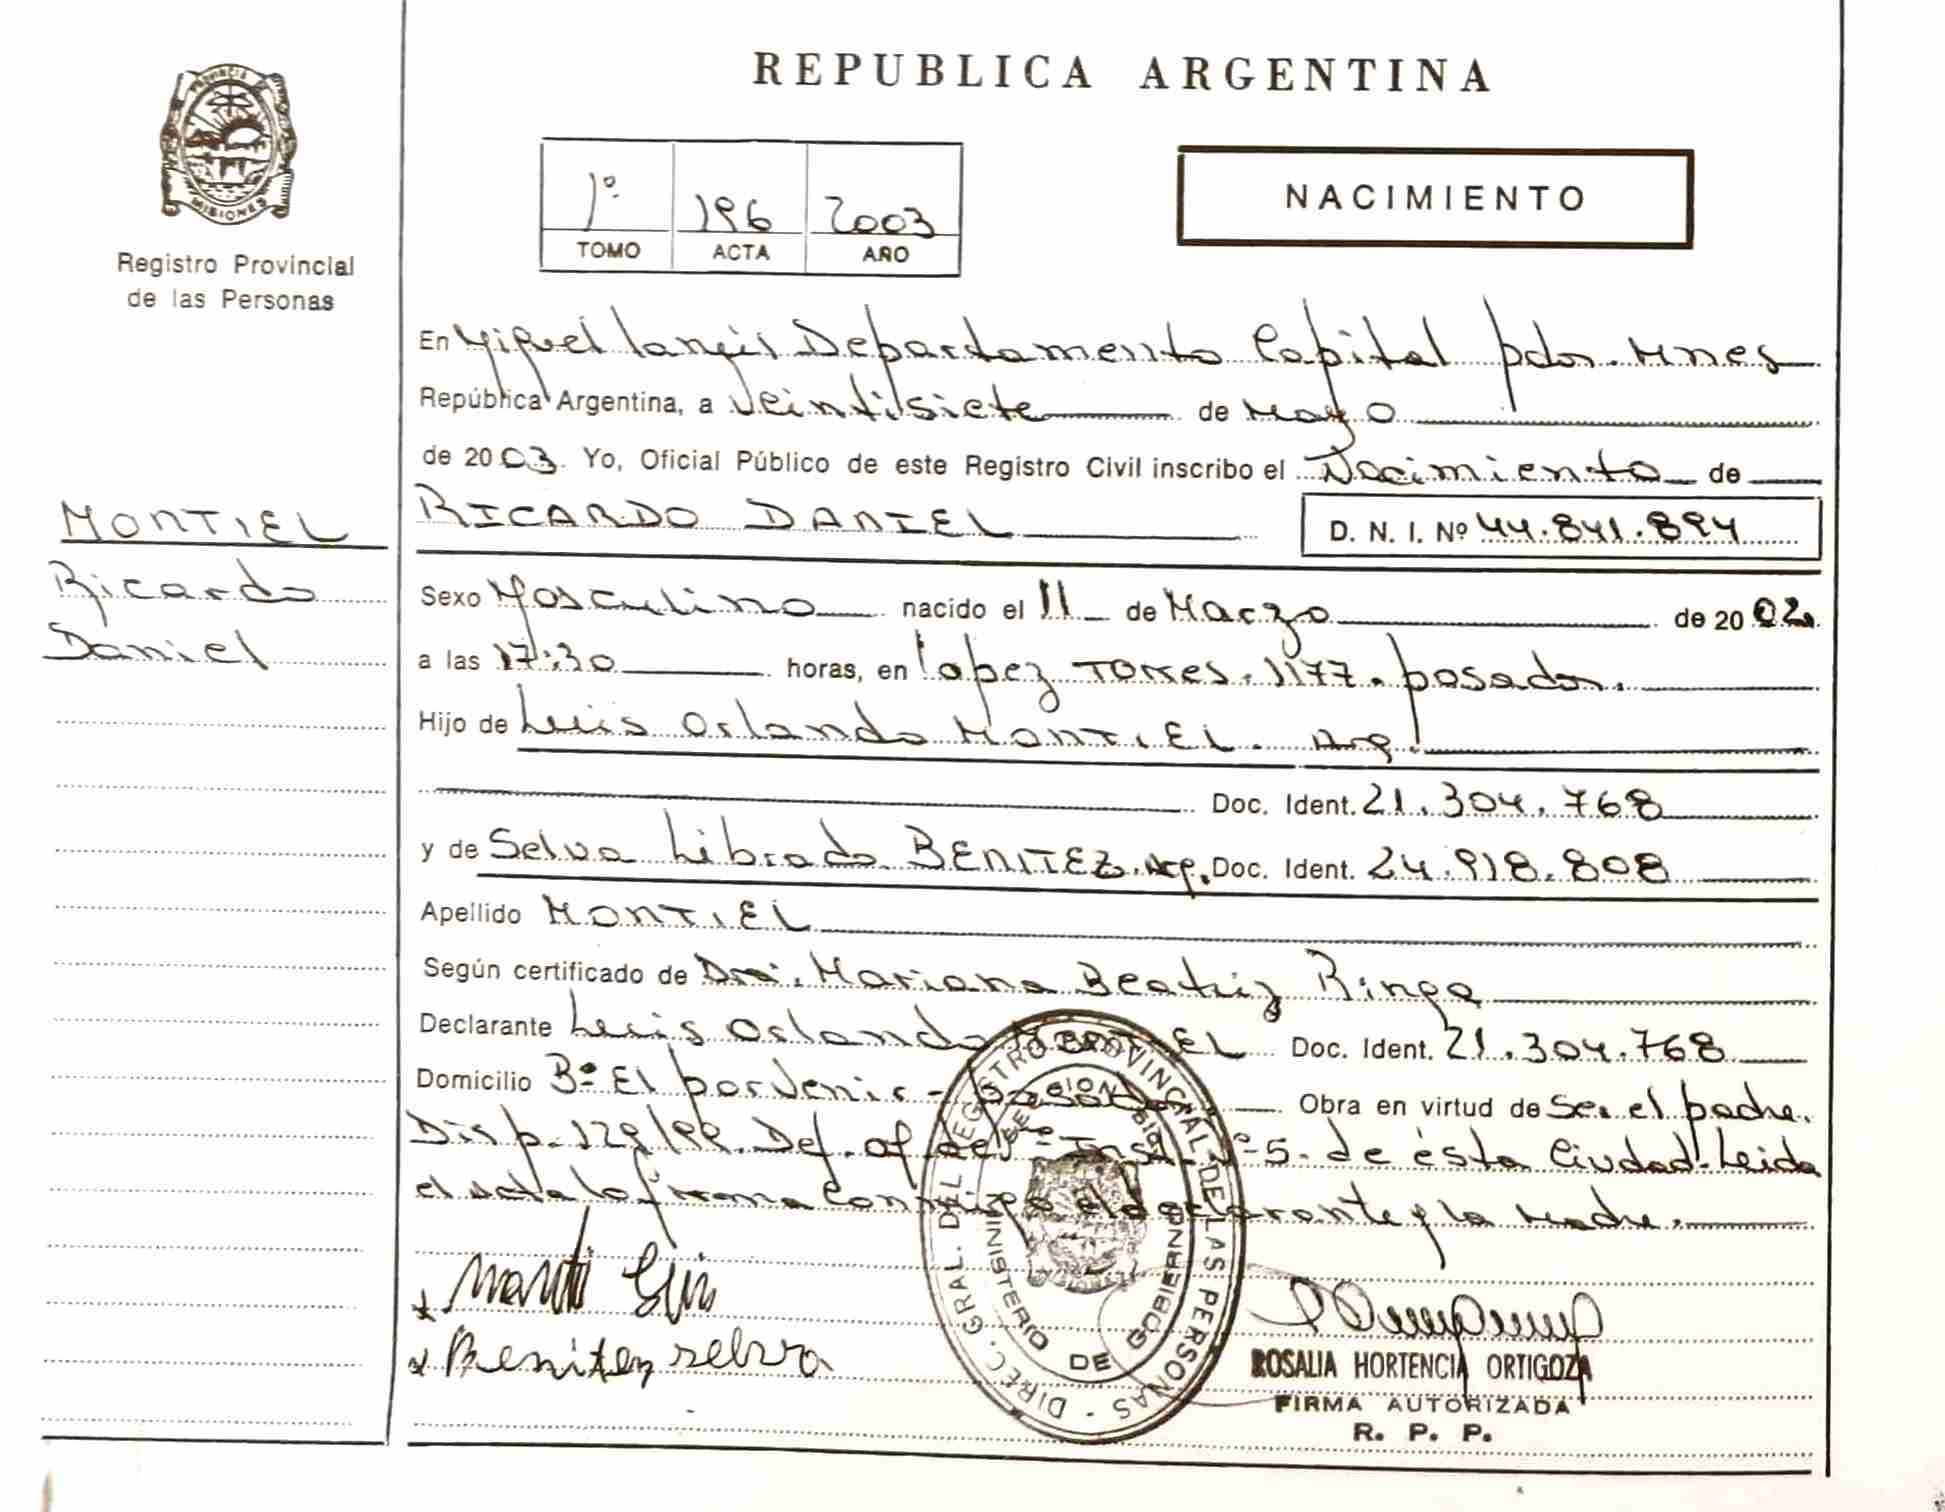 REPUBLICA ARGENTINA
PROVINCIA DE
MISIONES
Registro Provincial
de las Personas
1º 196 2003
TOMO ACTA AÑO
NACIMIENTO
En Miguel Lanús Departamento Capital pdas. Mnes
República Argentina, a veintisiete de Mayo
de 2003. Yo, Oficial Público de este Registro Civil inscribo el Nacimiento de
RICARDO DANIEL D. N. I. Nº 44.841.894
MONTIEL
Ricardo
Daniel
Sexo Masculino nacido el 11 de Marzo de 2002
a las 17:30 horas, en Lopez Torres. 1177. posadas.
Hijo de Luis Orlando MONTIEL. Arg.
Doc. Ident. 21.304.768
y de Selva Librada BENITEZ. Arg. Doc. Ident. 24.918.808
Apellido MONTIEL
Según certificado de Dra. Mariana Beatriz Ringa
Declarante Luis Orlando MONTIEL Doc. Ident. 21.304.768
Domicilio Bº El porvenir - posadas Obra en virtud de Ser el padre.
Disp. 129/99. Def. of. de 1º Inst. Nº 5. de ésta Ciudad. Leida
el acta la firma conmigo el declarante y la Madre.
Benitez selva
DIREC. GRAL. DEL REGISTRO PROVINCIAL DE LAS PERSONAS -
MINISTERIO DE GOBIERNO
ROSALIA HORTENCIA ORTIGOZA
FIRMA AUTORIZADA
R. P. P.